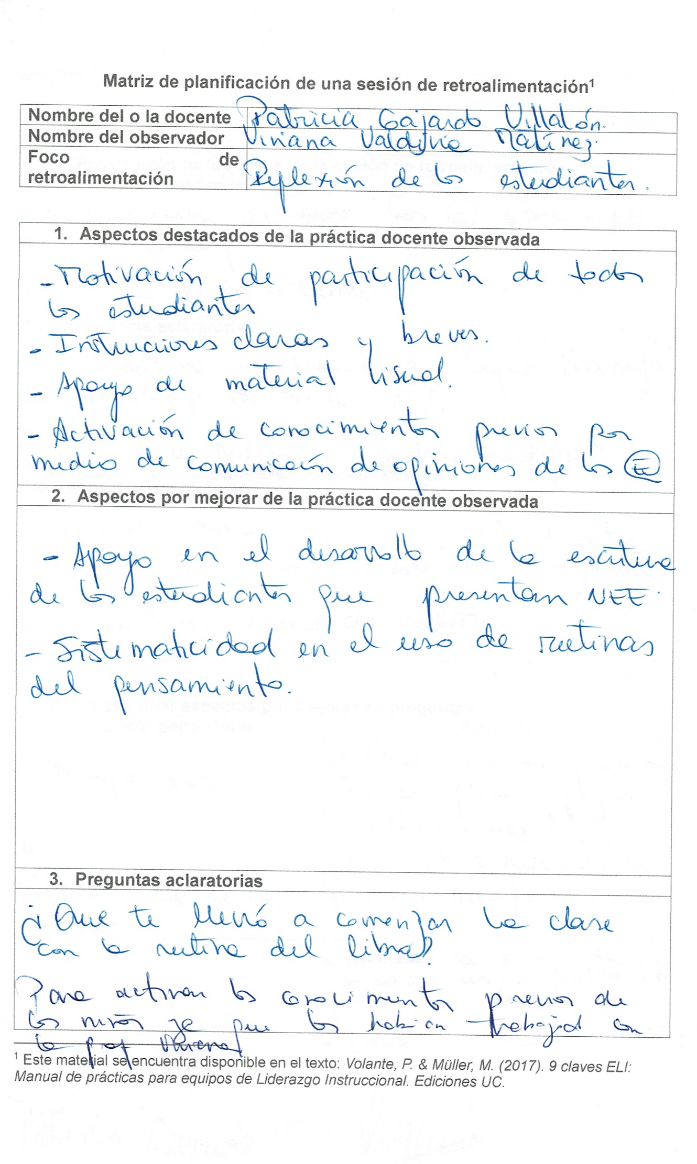 Matriz de planificación de una sesión de retroalimentación¹
Nombre del o la docente Patricia Gajardo Villalón.
Nombre del observador Viviana Valdivia Matínez.
Foco de
retroalimentación Reflexión de los estudiantes.
1. Aspectos destacados de la práctica docente observada
- Motivación de participación de todos
los estudiantes
- Instrucciones claras y breves.
- Apoyo de material visual.
- Activación de conocimientos previos por
medio de comunicación de opiniones de los E
2. Aspectos por mejorar de la práctica docente observada
- Apoyo en el desarrollo de la escritura
de los estudiantes que presentan NEE.
- Sistematicidad en el uso de rutinas
del pensamiento.
3. Preguntas aclaratorias
¿Que te llevó a comenzar la clase
con la rutina del libro?
Para activan los conocimientos previos de
los niños ya que los habían trabajad con
la prof Viviana
¹ Este material se encuentra disponible en el texto: Volante, P. & Müller, M. (2017). 9 claves ELI:
Manual de prácticas para equipos de Liderazgo Instruccional. Ediciones UC.